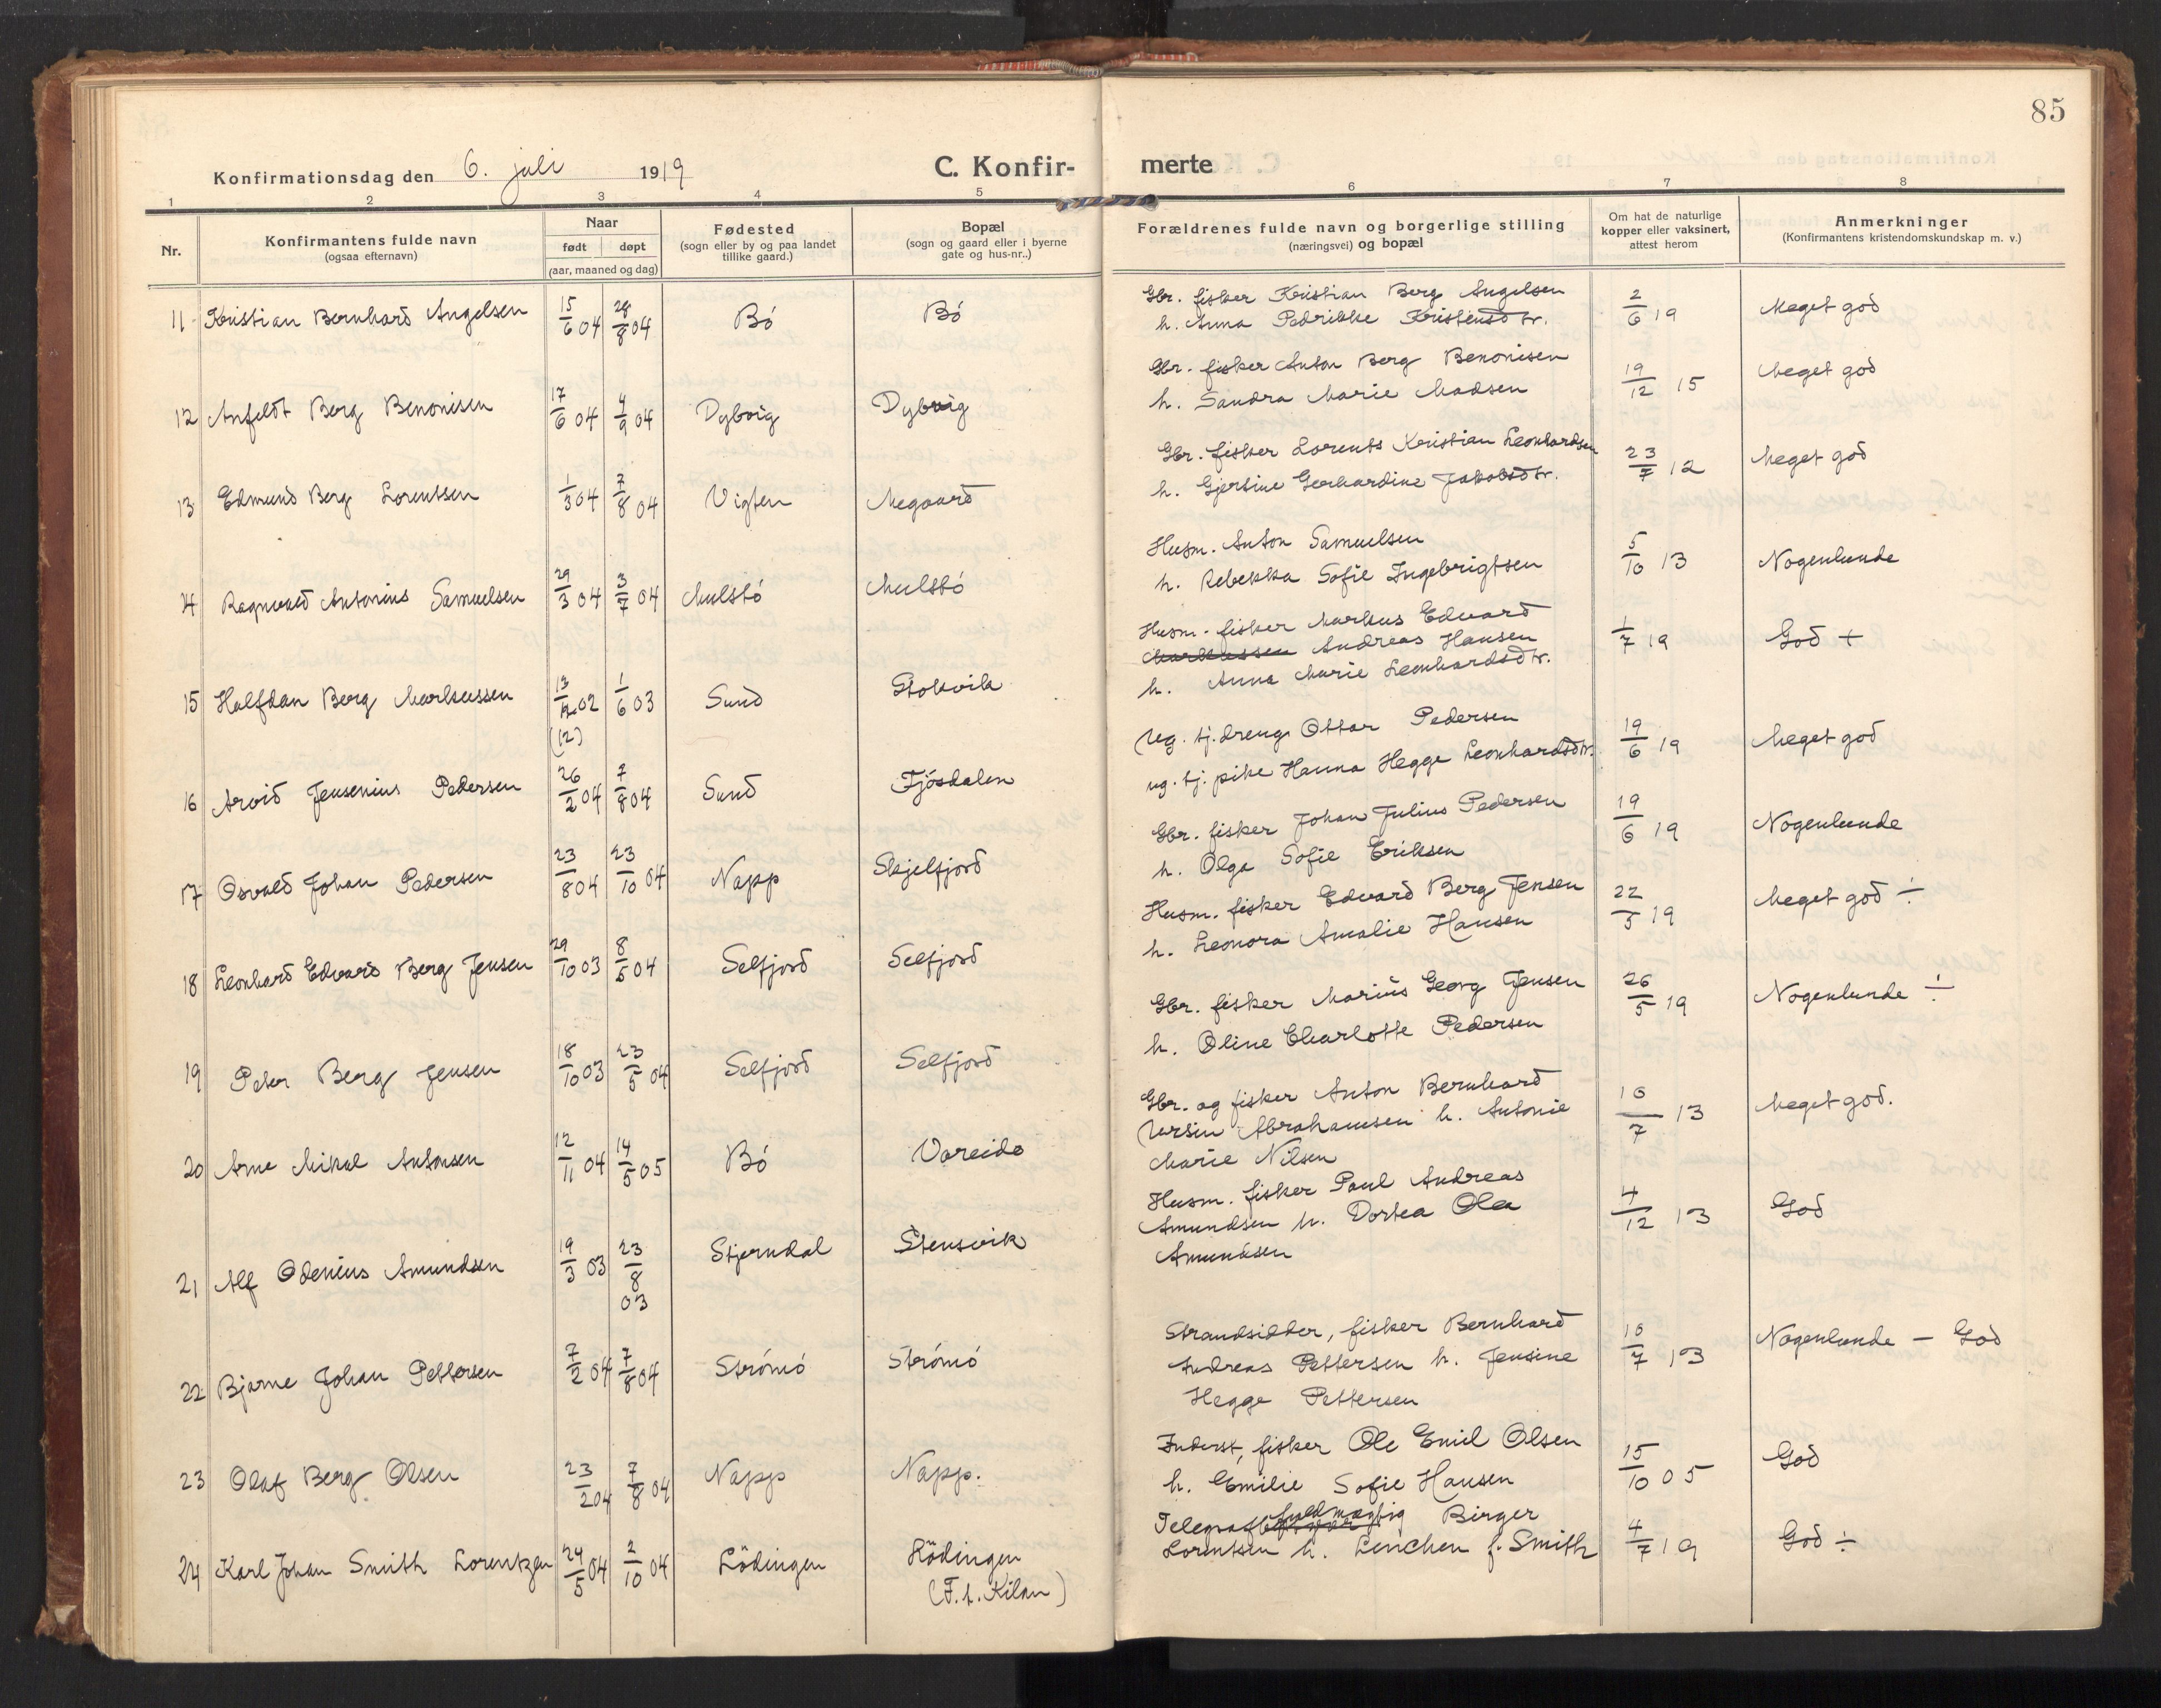 85
Konfirmationsdag den 6. juli 1919
C. Konfir-
merte
1 2 3 4 5 6 7 8
Nr.
Konfirmantens fulde navn
(ogsaa efternavn)
Naar
født døpt
(aar, maaned og dag)
Fødested
(sogn eller by og paa landet
tillike gaard.)
Bopæl
(sogn og gaard eller i byerne
gate og hus-nr..)
Forældrenes fulde navn og borgerlige stilling
(næringsvei) og bopæl
Om hat de naturlige
kopper eller vaksinert,
attest herom
Anmerkninger
(Konfirmantens kristendomskundskap m. v.)
11 Kristian Bernhard Angelsen 15/6 04 28/8 04 Bó Bó
Gbr. fisker Kristian Berg Angelsen
h. Anna Pedrikke Kristensdtr.
2/6 19 Meget god
12 Anfeldt Berg Benonisen 17/6 04 4/9 04 Dybvig Dybvig
Gbr. fisker Anton Berg Benonisen
h. Sandra Marie Madsen
19/12 15 Meget god
13 Edmund Berg Lorentsen 1/3 04 7/8 04 Vigten Megaard
Gbr. fisker Lorents Kristian Leonhardsen
h. Gjertine Gerhardine Jakobsdtr.
23/7 12 Meget god
14 Ragnvald Antonius Samuelsen 29/3 04 3/7 04 Mulstó Mulstó
Husm. Anton Samuelsen
h. Rebekka Sofie Ingebrigtsen
5/10 13 Nogenlunde
15 Halfdan Berg Markussen 13/12 02 1/6 03 Sund Stokvik
(12)
Husm. fisker Markus Edvard
Markussen Andreas Hansen
h. Anna Marie Leonhardsdtr.
1/7 19 God +
16 Arvid Jensenius Pedersen 26/2 04 7/8 04 Sund Fjósdalen
Ug. tj. dreng Ottar Pedersen
ug. tj. pike Hanna Hegge Leonhardsdtr.
19/6 19 Meget god
17 Osvald Johan Pedersen 23/8 04 23/10 04 Napp Skjelfjord
Gbr. fisker Johan Julius Pedersen
h. Olga Sofie Eriksen
19/6 19 Nogenlunde
18 Leonhard Edvard Berg Jensen 29/10 03 8/5 04 Selfjord Selfjord
Husm. fisker Edvard Berg Jensen
h. Leonora Amalie Hansen
22/5 19 Meget god ÷
19 Peter Berg Jensen 18/10 03 23/5 04 Selfjord Selfjord
Gbr. fisker Marius Georg Jensen
h. Oline Charlotte Pedersen
26/5 19 Nogenlunde ÷
20 Arne Mikal Antonsen 12/11 04 14/5 05 Bó Vareide
Gbr. og fisker Anton Bernhard
Ursin Abrahamsen h. Antonie
Marie Nilsen
10/7 13 Meget god.
21 Alf Odenius Amundsen 19/3 03 23/8 03 Stjerndal Stensvik
Husm. fisker Paul Andreas
Amundsen h. Dortea Olea
Amundsen
4/12 13 God
22 Bjarne Johan Pettersen 7/2 04 7/8 04 Strómó Strómó
Strandsidder, fisker Bernhard
Andreas Pettersen h. Jensine
Hegge Pettersen
10/7 13 Nogenlunde - God
23 Olaf Berg Olsen 23/2 04 7/8 04 Napp Napp.
Inderst, fisker Ole Emil Olsen
h. Emilie Sofie Hansen
15/10 05 God
24 Karl Johan Smith Lorentzen 24/5 04 2/10 04 Lödingen Hödingen
(F. h. Kilan)
Telegraf fuldmægtig Birger
Lorentsen h. Lenchen f. Smith
4/7 19 God ÷